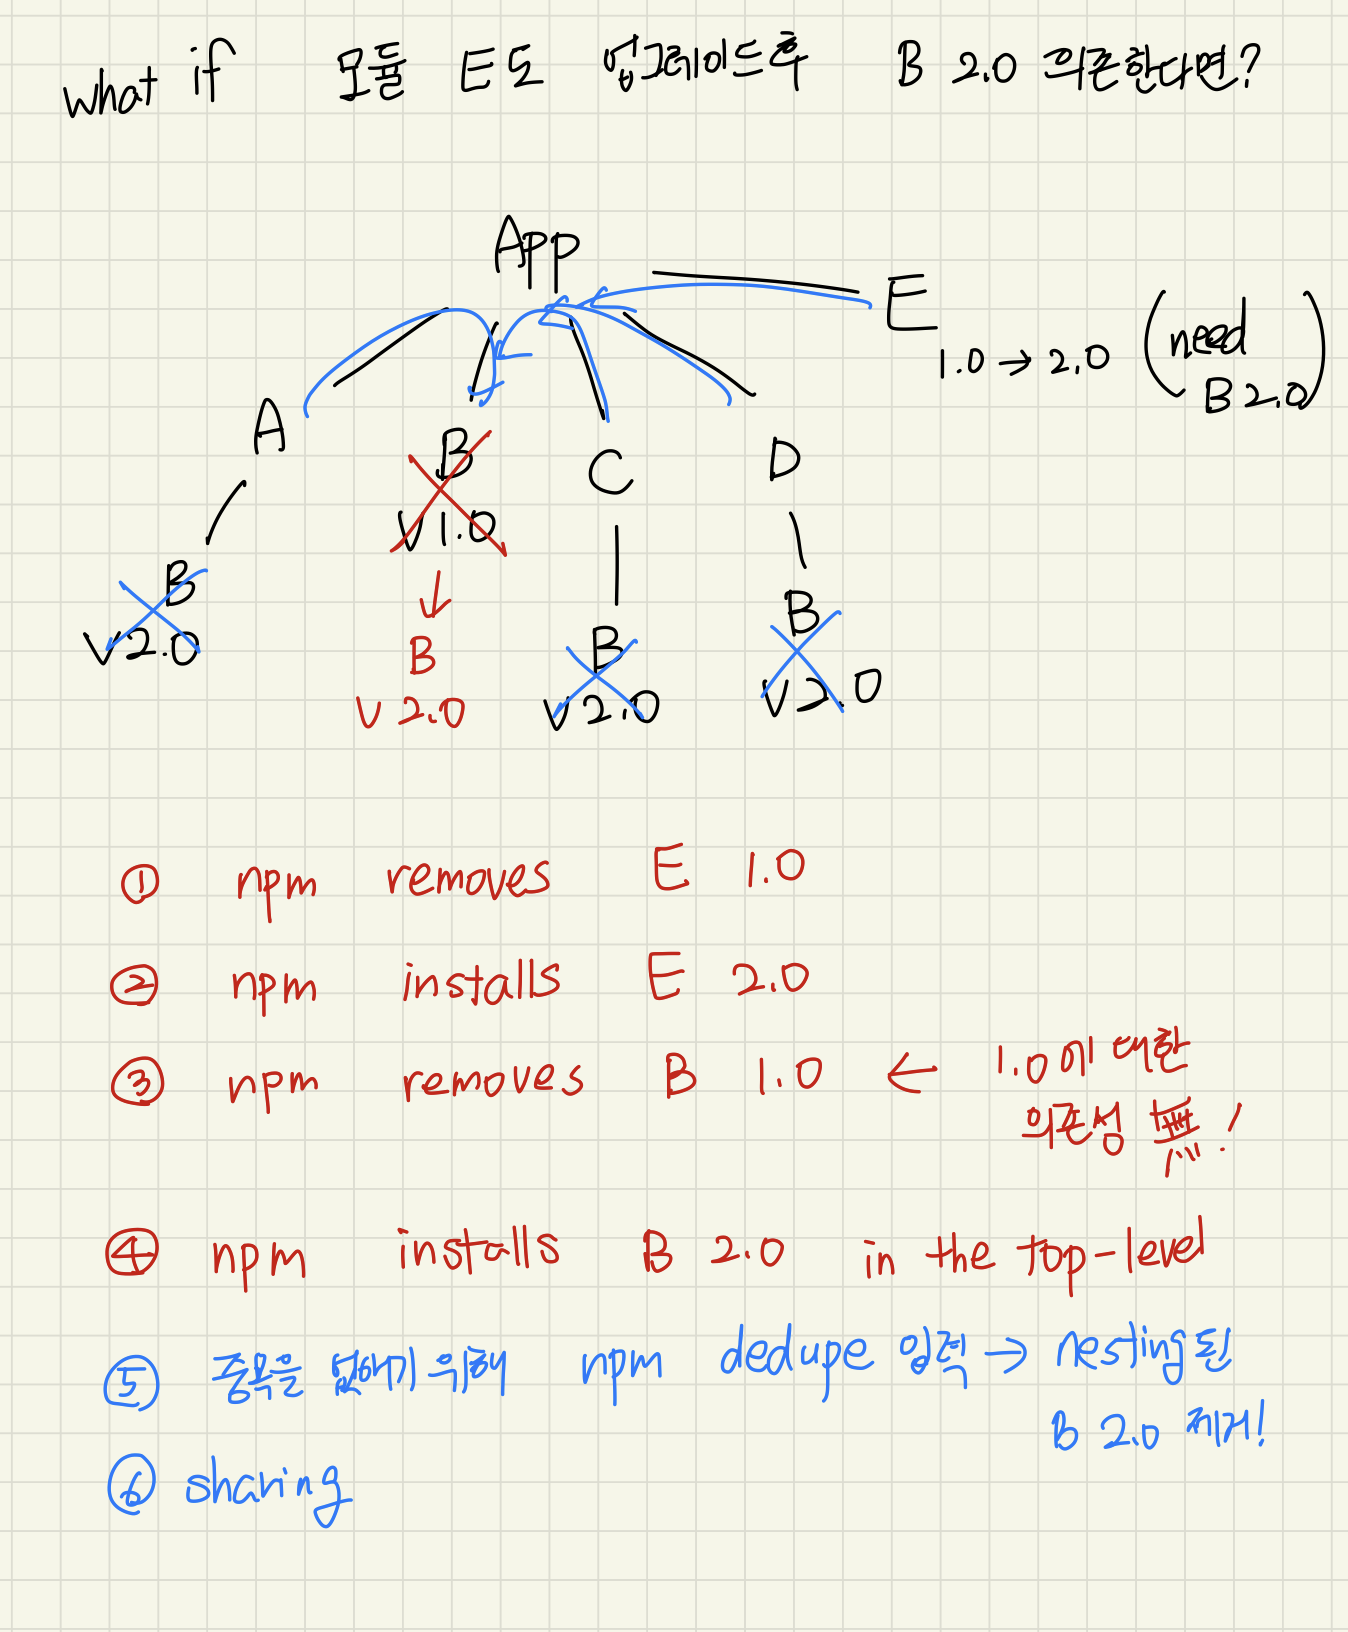 what if 모듈 E도 업그레이드후 B 2.0 의존한다면?
App
E
1.0 → 2.0 (need B 2.0)
A
B
V1.0
C
D
B
V2.0
↓
B
V 2.0
B
V 2.0
B
V 2.0
① npm removes E 1.0
② npm installs E 2.0
③ npm removes B 1.0 ← 1.0에 대한
의존성 無!
④ npm installs B 2.0 in the top-level
⑤ 중복을 없애기 위해 npm dedupe 입력 → nesting된
B 2.0 제거!
⑥ sharing